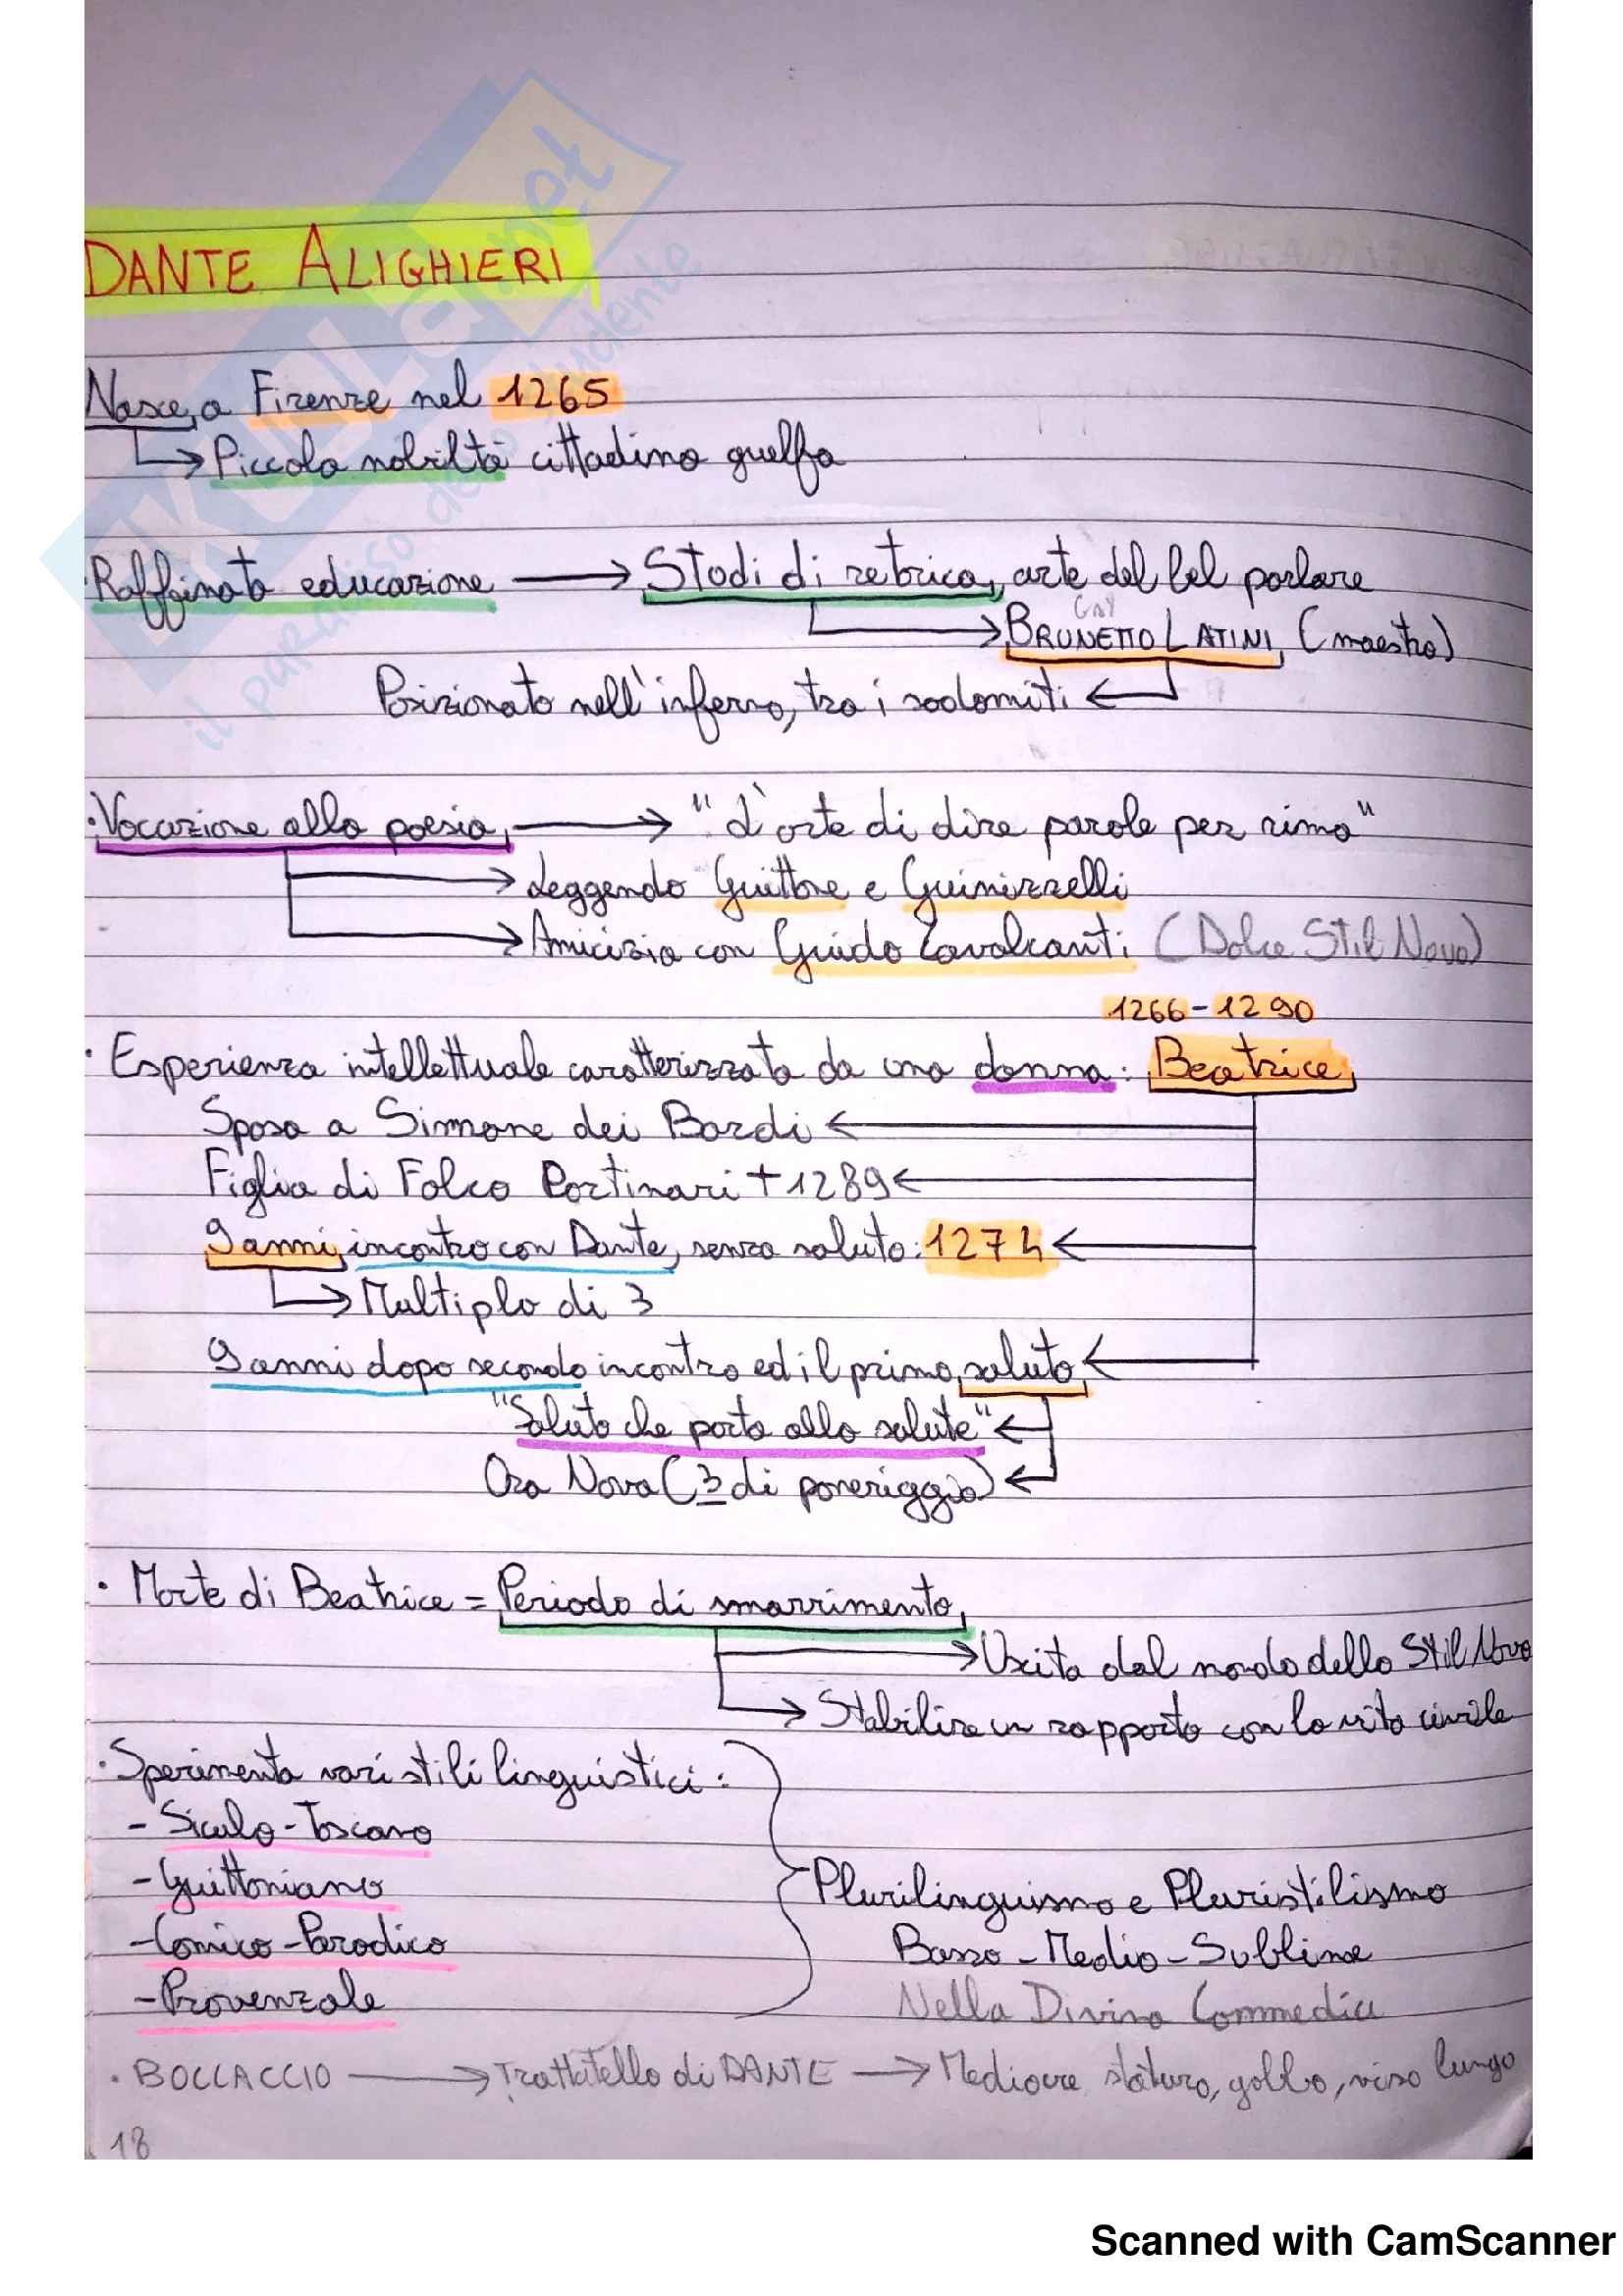 DANTE ALIGHIERI
Nasce a Firenze nel 1265
Piccola nobiltà cittadina guelfa
· Raffinata educazione → Studi di retorica, arte del bel parlare
Gay
BRUNETTO LATINI (maestro)
Posizionato nell'inferno, tra i sodomiti
· Vocazione alla poesia → "L'arte di dire parole per rima"
Leggendo Guittone e Guinizzelli
Amicizia con Guido Cavalcanti (Dolce Stil Novo)
1266-1290
· Esperienza intellettuale caratterizzata da una donna: Beatrice
Sposa a Simone dei Bardi
Figlia di Folco Portinari + 1289
9 anni, incontro con Dante, senza saluto: 1274
Multiplo di 3
9 anni dopo secondo incontro ed il primo saluto
"Saluto che porta alla salute"
Ora Nova (3 di pomeriggio)
· Morte di Beatrice = Periodo di smarrimento
Uscita dal mondo dello Stil Novo
Stabilire un rapporto con la vita civile
· Sperimenta vari stili linguistici:
- Siculo-Toscano
- Guittoniano
- Comico-Parodico
- Provenzale
Plurilinguismo e Pluristilismo
Basso-Medio-Sublime
Nella Divina Commedia
· BOCCACCIO → Trattatello di DANTE → Mediocre statura, gobbo, viso lungo
18
SKUOLA.net
il paradiso dello studente
Scanned with CamScanner